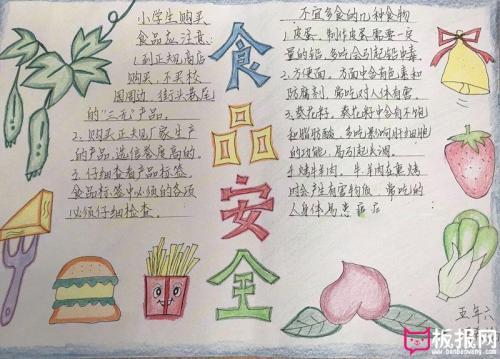 小学生购买
食品应注意:
1、到正规商店
购买,不买校
园周边、街头巷尾
的"三无"产品。
2、购买正规厂家生产
的产品,选信誉度高的。
3、仔细查看产品标签。
食品标签中必须的各项
必须仔细检查。
食品安全
不宜多食的几种食物
1、皮蛋,制作皮蛋需要一定
量的铅,多吃会引起铅中毒。
2、方便面,方面中含有色素和
防腐剂,常吃对人体有害。
3、葵花籽,葵花籽中含有不饱
和脂肪酸,多吃影响肝细胞
的功能,易引起头凋。
4、烤牛羊肉,牛、羊肉在熏烤
时会产生有害物质,常吃的
人身体易患
五年六
板报网
www.banbaowang.com